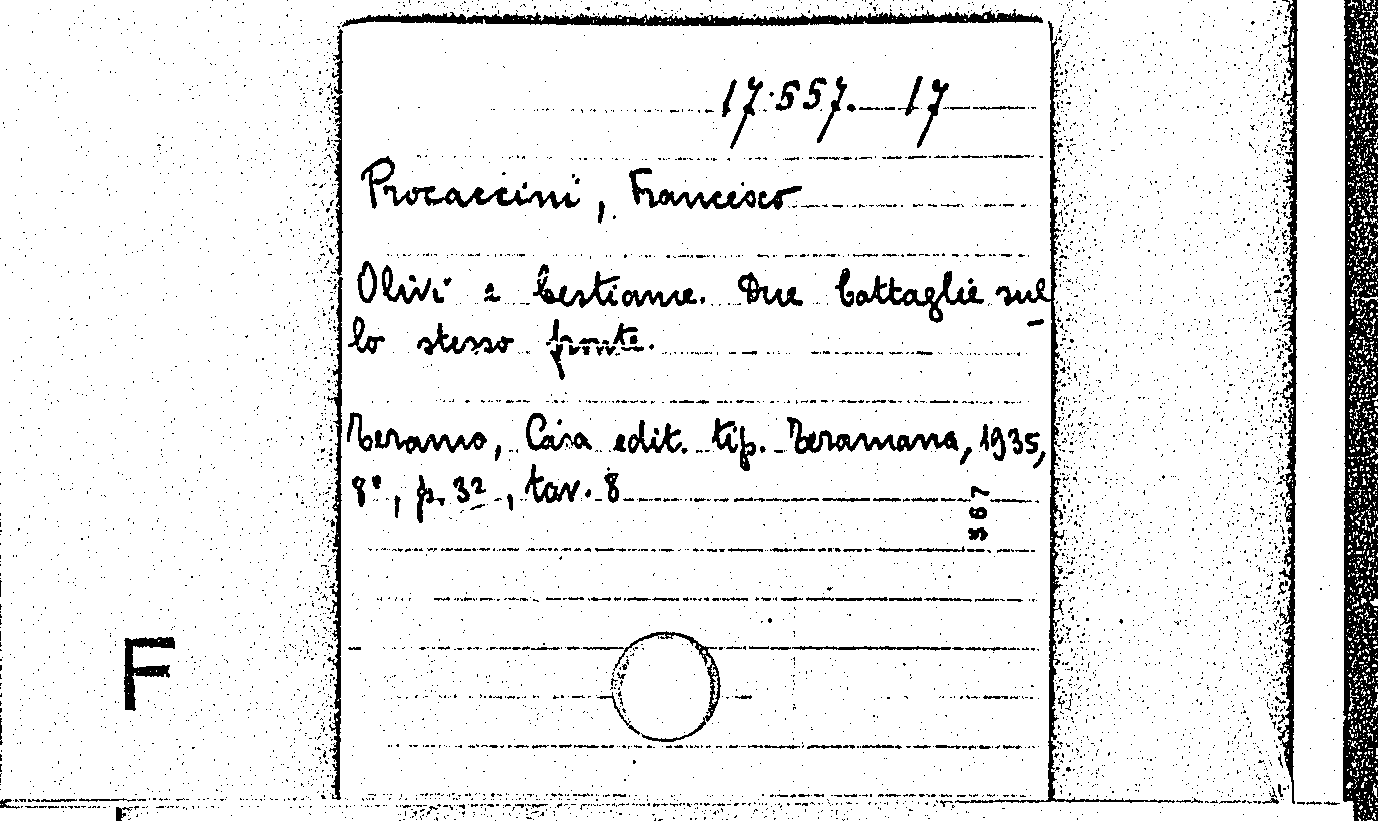 17.557. 17
Procaccini, Francesco
Olivi e bestiame. Due battaglie sul
lo stesso fronte.
Teramo, Casa edit. tip. Teramana, 1935,
8°, p. 32, tav. 8
567
F